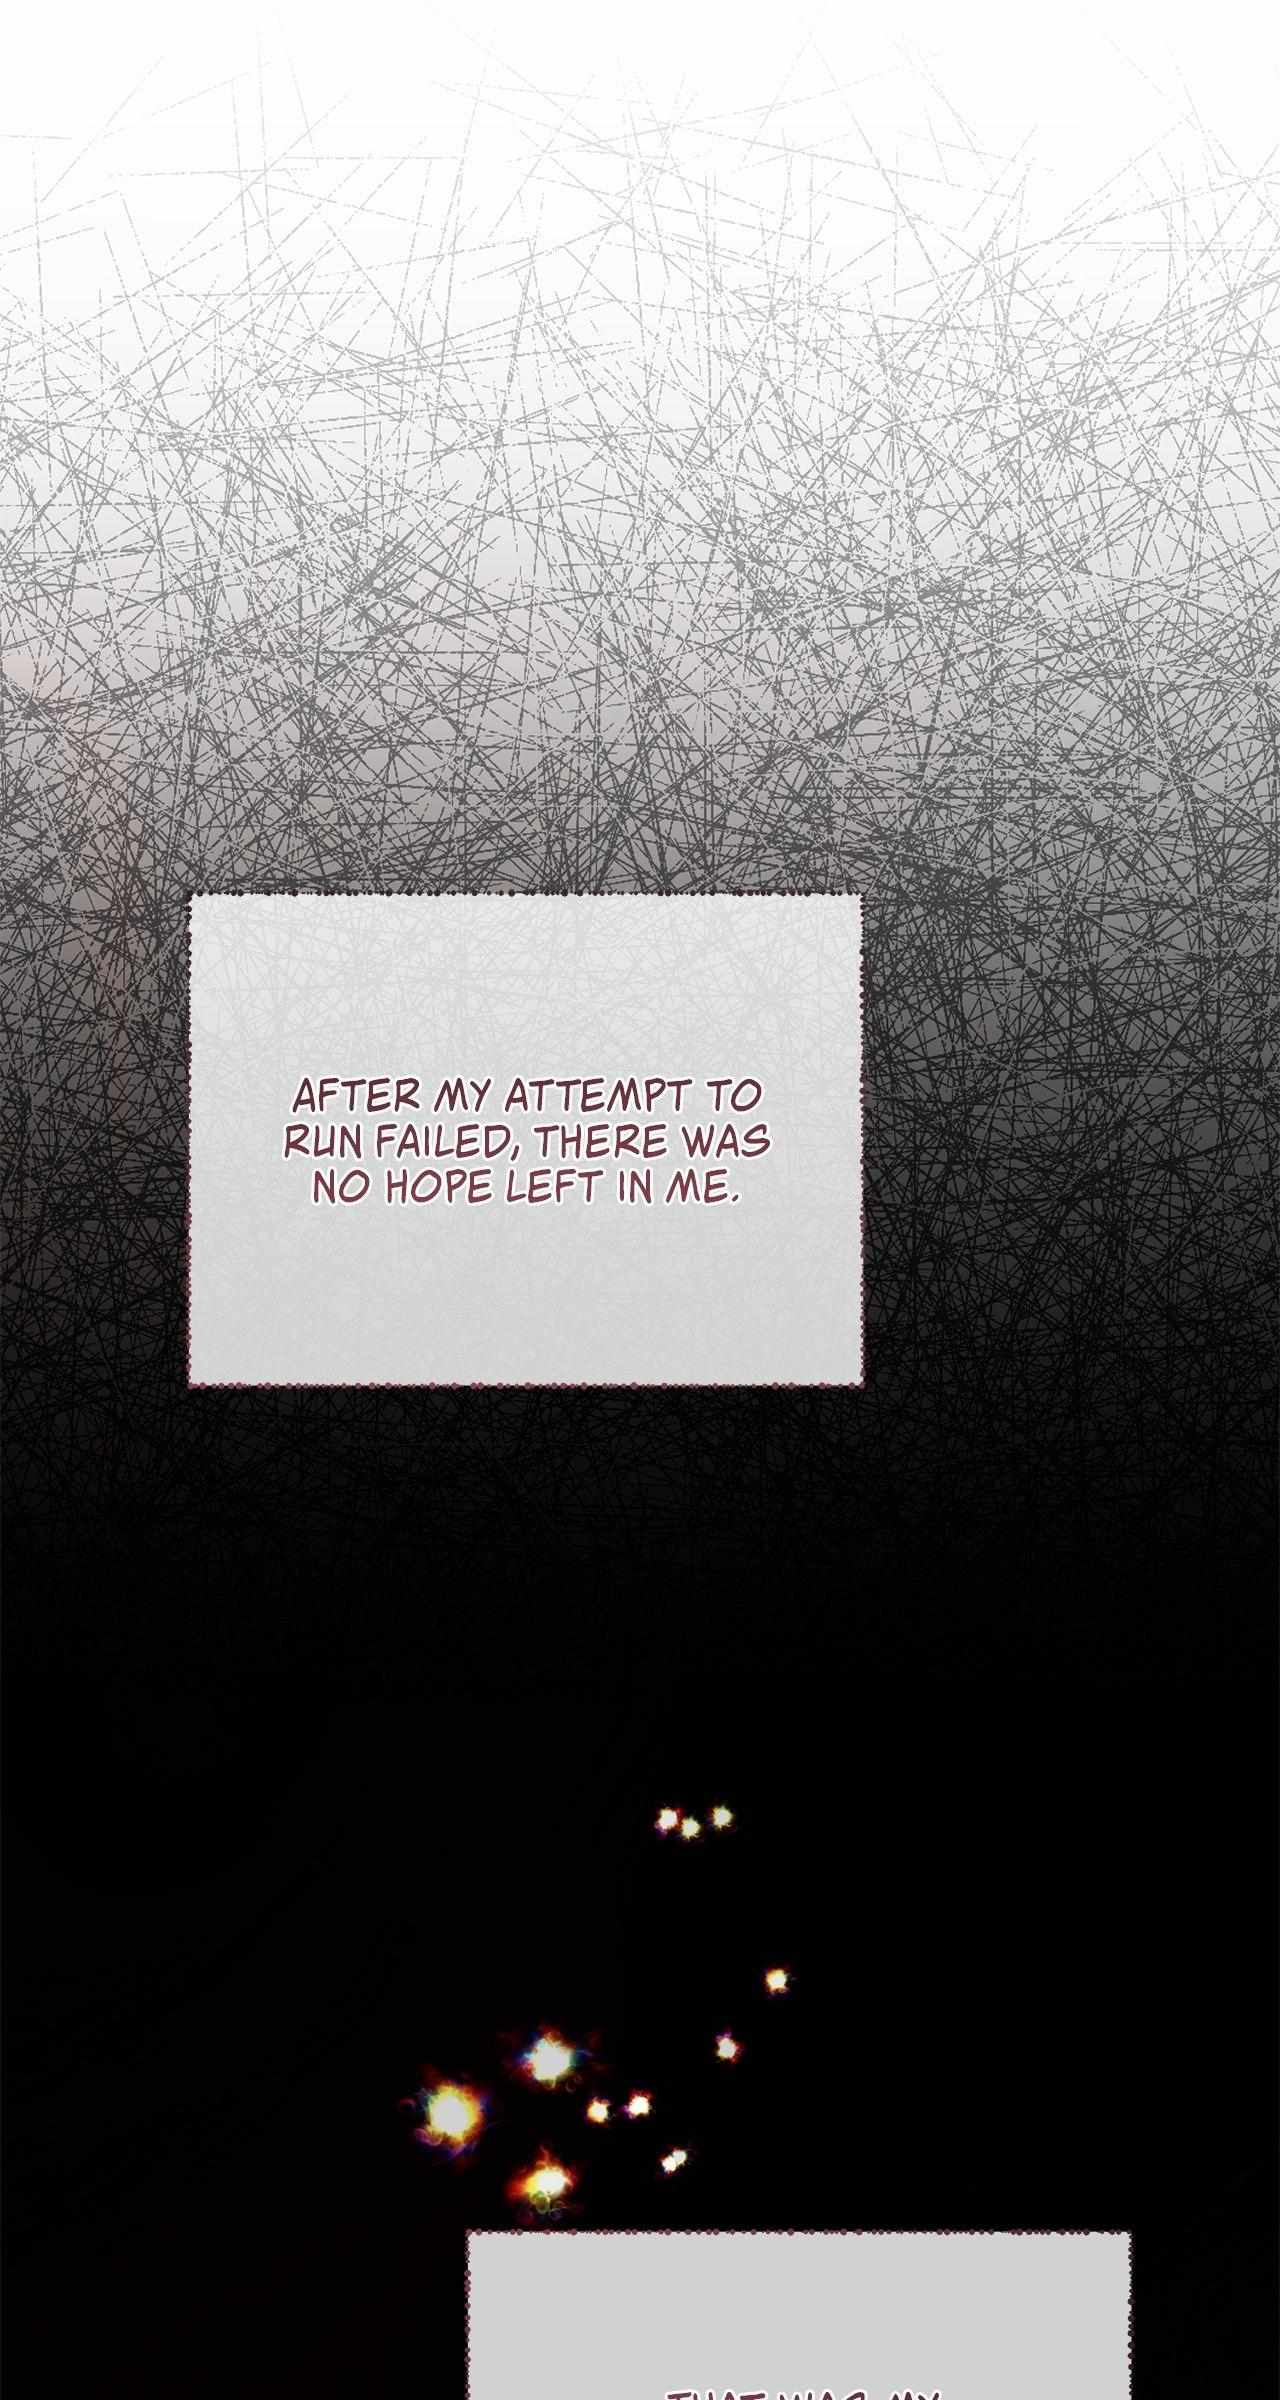 AFTER MY ATTEMPT TO
RUN FAILED, THERE WAS
NO HOPE LEFT IN ME.
THAT WAS MY